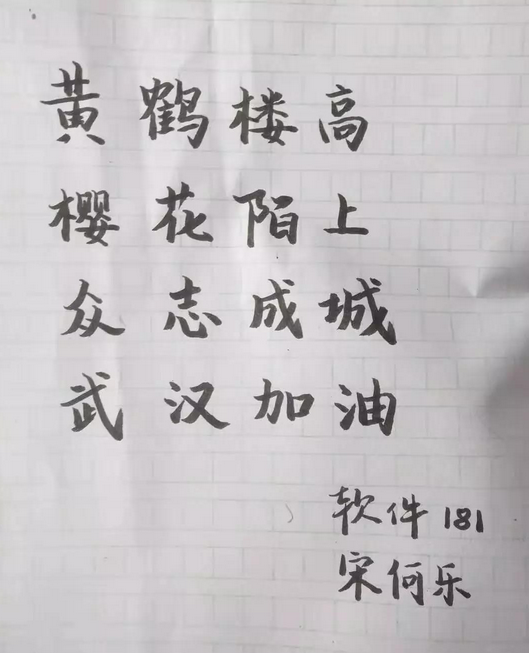 黄鹤楼高
樱花陌上
众志成城
武汉加油
软件181
宋何乐